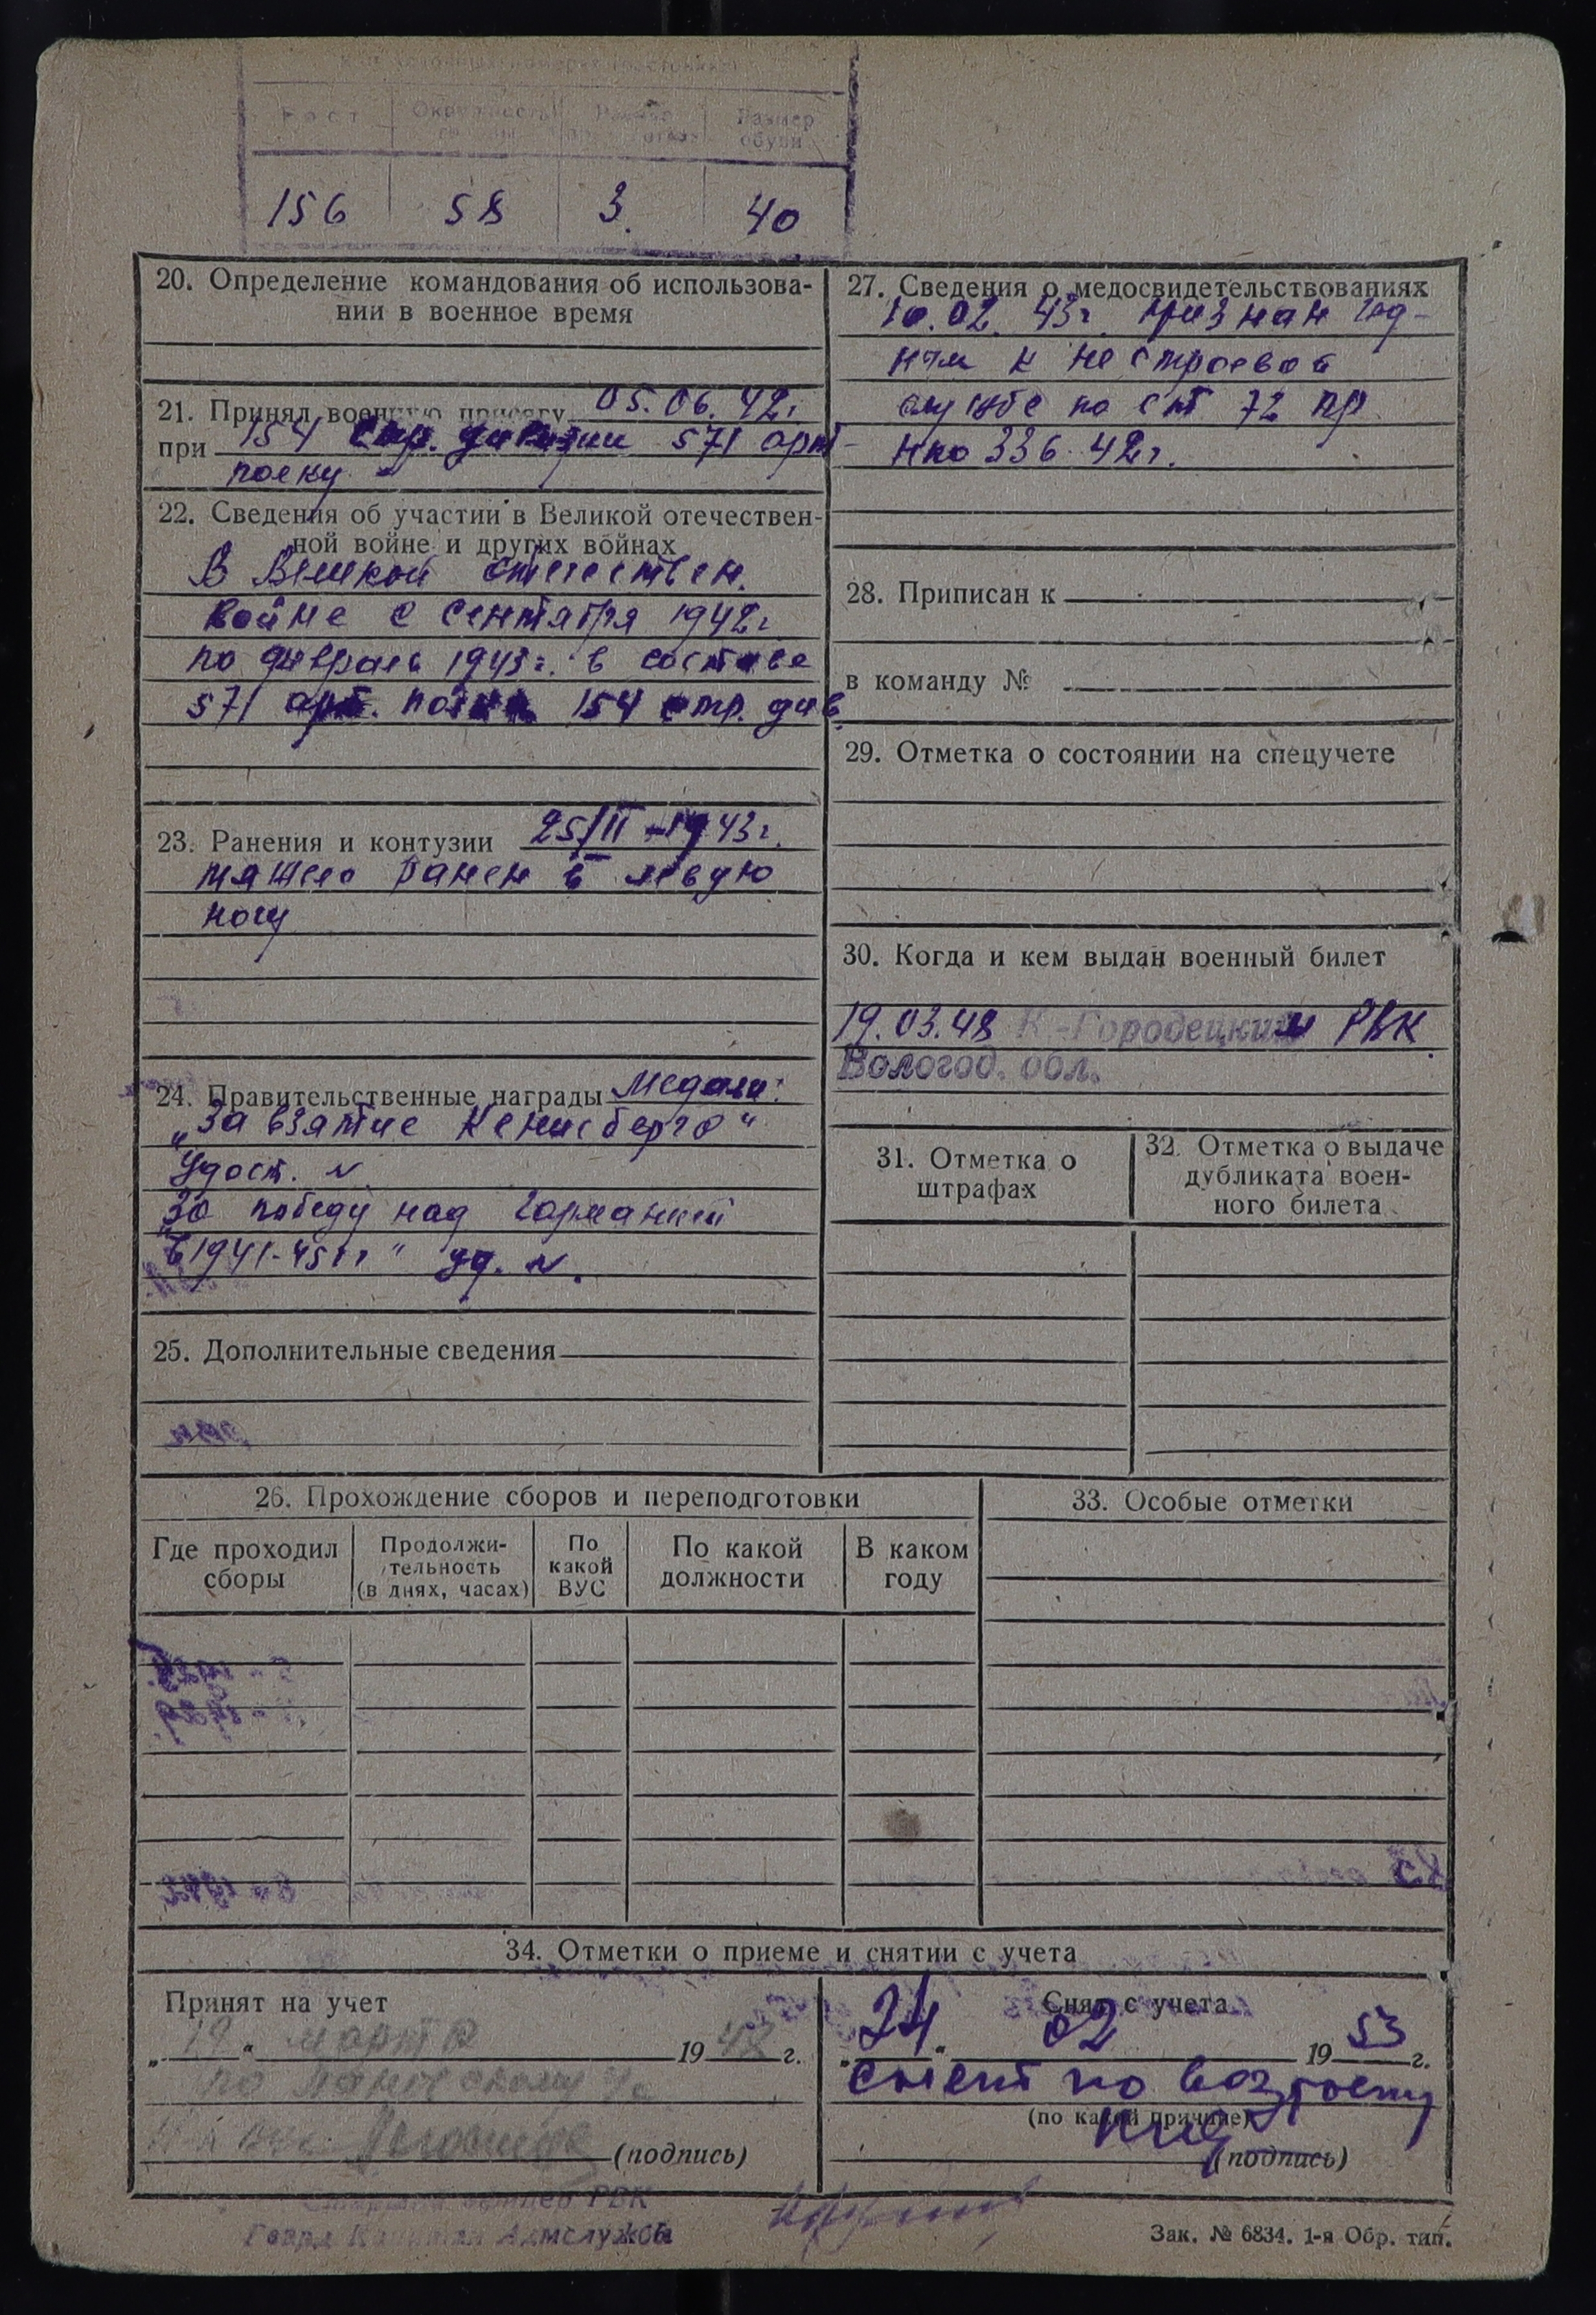 Рост Окружность головы Размер противогаза Размер обуви
156 58 3. 40
20. Определение командования об использова-
нии в военное время
21. Принял военную присягу 05.06.42г
при 154 стр. дивизии 571 арт-
полку
22. Сведения об участии в Великой отечествен-
ной войне и других войнах
В Великой отечествен.
войне с сентября 1942г
по февраль 1943г. в составе
571 арт. полка 154 стр. див
23. Ранения и контузии 25/II-1943г.
тяжело ранен в левую
ногу
24. Правительственные награды Медали:
„За взятие Кенисберга"
Удост. N
„За победу над Германией
в 1941-45гг" уд. N.
25. Дополнительные сведения
27. Сведения о медосвидетельствованиях
10.02.43г. признан год-
ным к нестроевой
службе по ст 72 пр.
нко 336 42г.
28. Приписан к
в команду №
29. Отметка о состоянии на спецучете
30. Когда и кем выдан военный билет
19.03.48 К-Городецким РВК
Вологод. обл.
31. Отметка о
штрафах
32. Отметка о выдаче
дубликата воен-
ного билета
26. Прохождение сборов и переподготовки
Где проходил
сборы
Продолжи-
тельность
(в днях, часах)
По
какой
ВУС
По какой
должности
В каком
году
33. Особые отметки
34. Отметки о приеме и снятии с учета
Принят на учет
„19" марта 1948 г.
по
(подпись)
РВК
Гвард Капитан Админслужбы
Снят с учета
„24" 02 1953 г.
снят по возрасту
(по какой причине)
(подпись)
Зак. № 6834. 1-я Обр. тип.